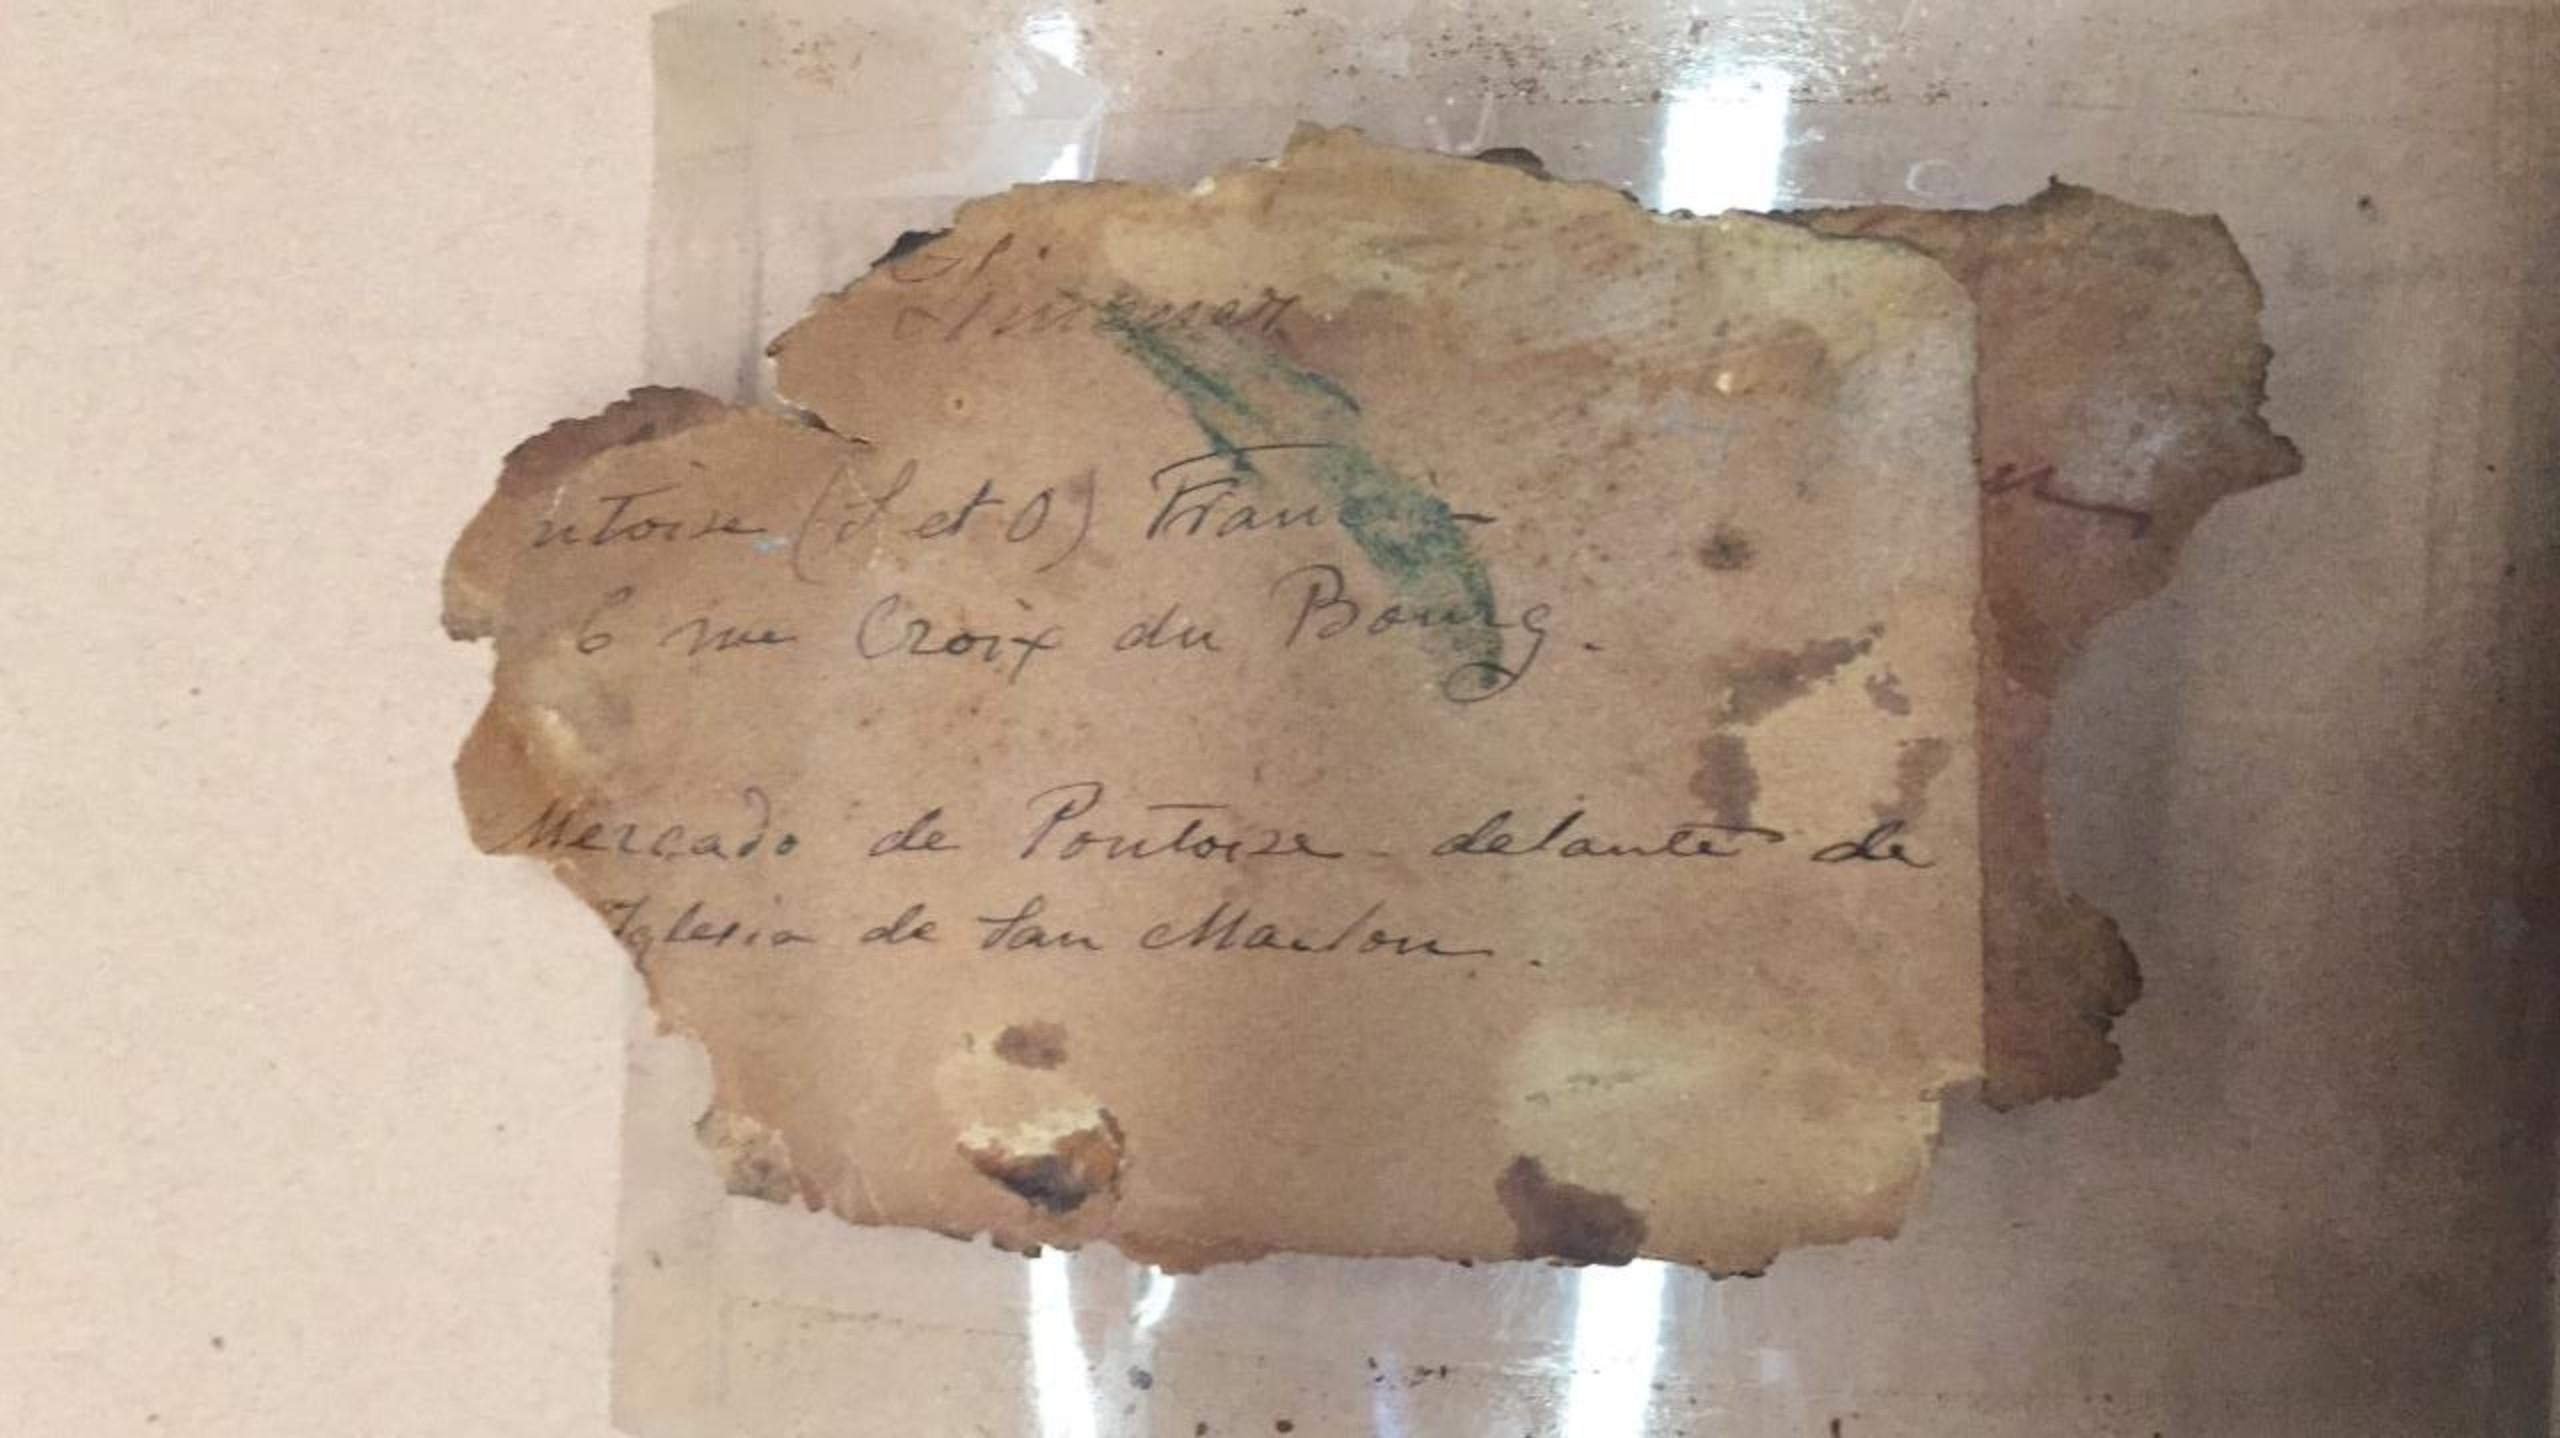 ntoise (S et O) France
6 rue Croix du Bourg.
Mercado de Pontoise - delante de
Iglesia de San Maclou.